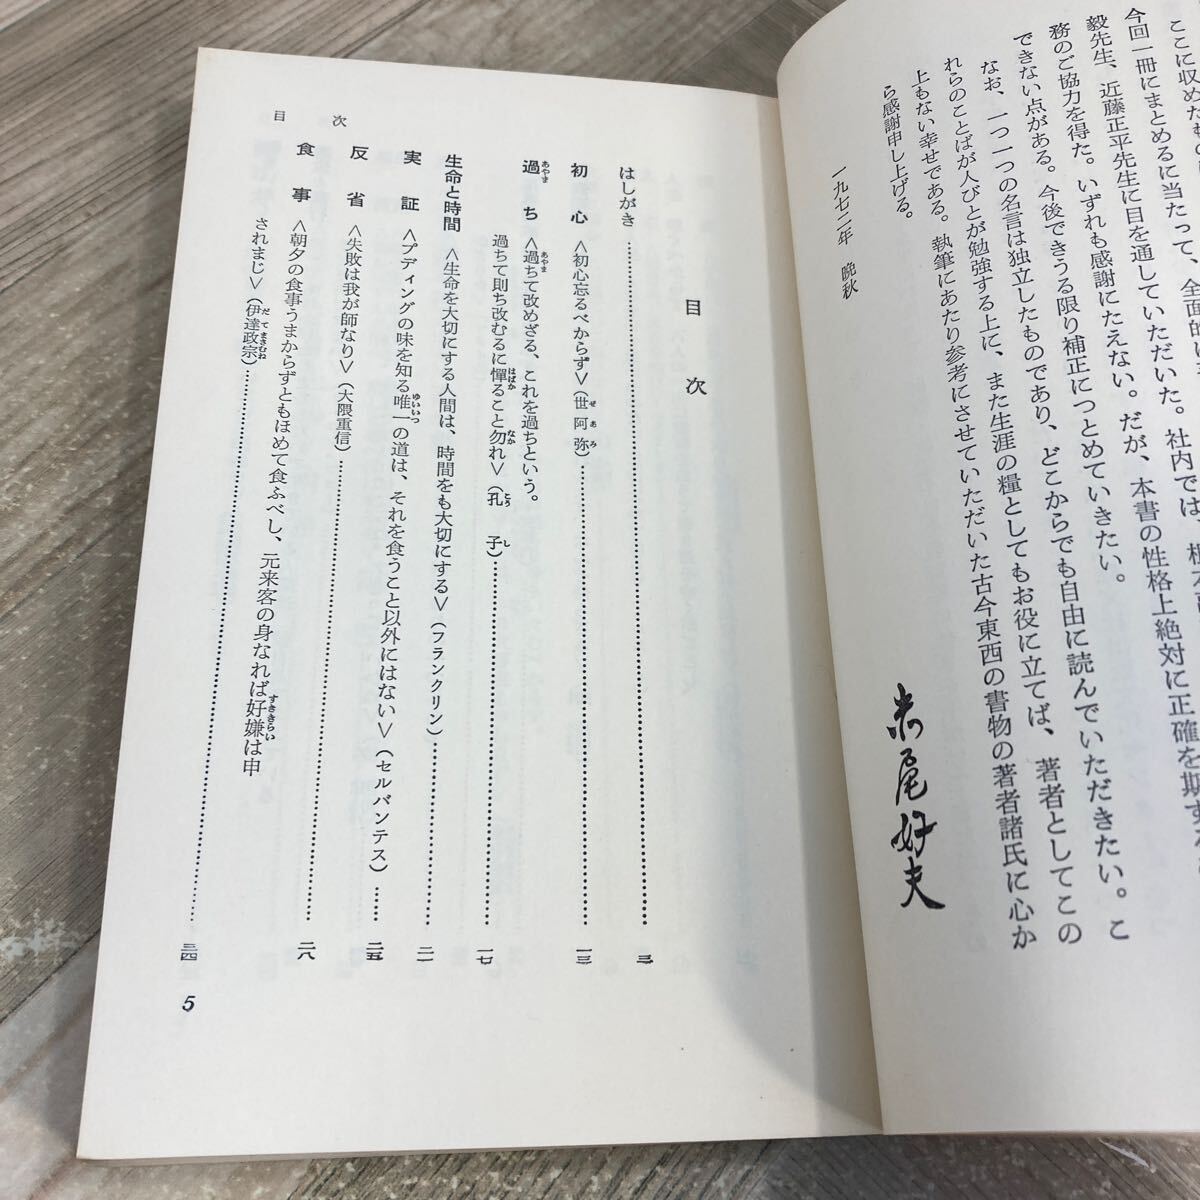 ここに収めたもの
今回一冊にまとめるに当たって、全面的に
毅先生、近藤正平先生に目を通していただいた。社内では、根
務のご協力を得た。いずれも感謝にたえない。だが、本書の性格上絶対に正確を期す
できない点がある。今後できうる限り補正につとめていきたい。
なお、一つ一つの名言は独立したものであり、どこからでも自由に読んでいただきたい。こ
れらのことばが人びとが勉強する上に、また生涯の糧としてもお役に立てば、著者としてこの
上もない幸せである。執筆にあたり参考にさせていただいた古今東西の書物の著者諸氏に心か
ら感謝申し上げる。
一九七二年 晩秋
赤尾好夫
目次
はしがき……三
初心 〈初心忘るべからず〉(世阿弥)……一三
過ち 〈過ちて改めざる、これを過ちという。
過ちて則ち改むるに憚ること勿れ〉(孔子)……一七
生命と時間 〈生命を大切にする人間は、時間をも大切にする〉(フランクリン)……二一
実証 〈プディングの味を知る唯一の道は、それを食うこと以外にはない〉(セルバンテス)……二五
反省 〈失敗は我が師なり〉(大隈重信)……二八
食事 〈朝夕の食事うまからずともほめて食ふべし、元来客の身なれば好嫌は申
されまじ〉(伊達政宗)……三四
目次
5